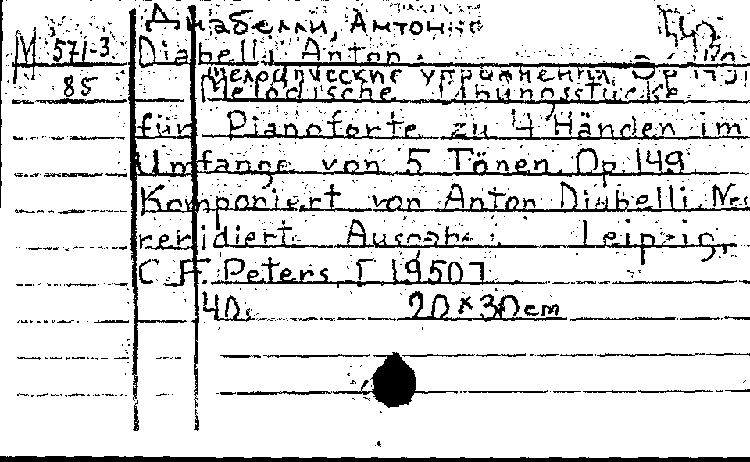 Диабелли, Антонио
M 571-3 Diabelli Anton.
85 мелодические упражнения. Op 149
Melodische Übungsstücke
für Pianoforte zu 4 Händen im
Umfange von 5 Tönen. Op. 149
Komponiert von Anton Diabelli. Neu
revidiert. Ausgabe. Leipzig,
C. F. Peters, [1950]
40s. 20×30cm